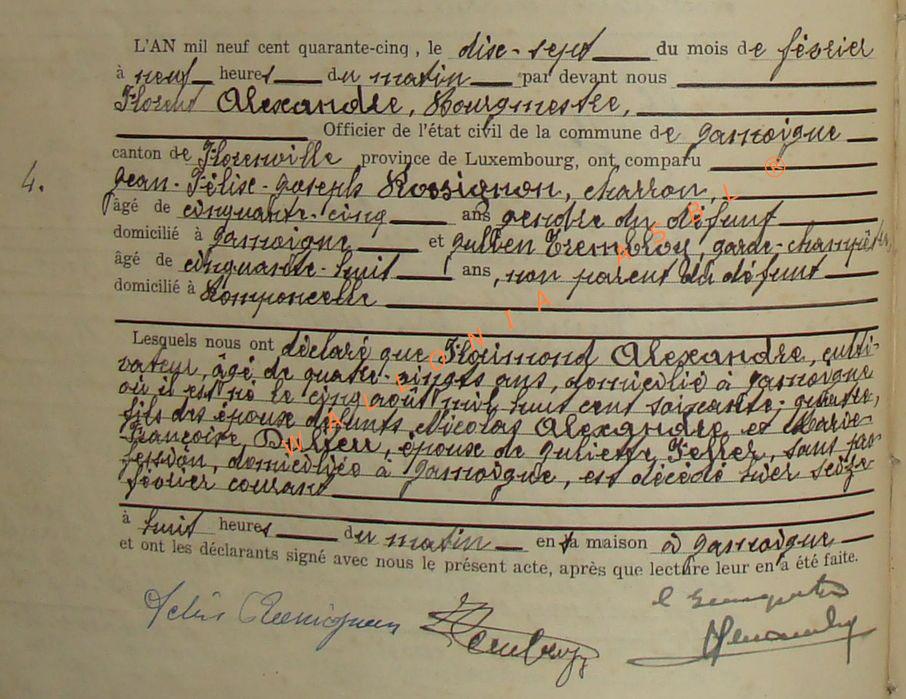 L'AN mil neuf cent quarante-cinq, le dix-sept du mois de février
à neuf heures du matin par devant nous
Florent Alexandre, Bourgmestre,
Officier de l'état civil de la commune de Jamoigne
canton de Florenville province de Luxembourg, ont comparu
4. Jean-Félix-Joseph Rossignon, charron,
âgé de cinquante-cinq ans gendre du défunt
domicilié à Jamoigne et Julien Trembloy, garde-champêtre,
âgé de cinquante-huit ans, non parent du défunt
domicilié à Romponcelle
Lesquels nous ont déclaré que Florimond Alexandre, culti-
vateur, âgé de quatre-vingts ans, domicilié à Jamoigne
où il est né le cinq août mil huit cent soixante-quatre,
fils des époux défunts Nicolas Alexandre et Marie-
Françoise, épouse de Juliette Feller, sans pro-
fession, domiciliée à Jamoigne, est décédé hier seize
février courant
à huit heures du matin en sa maison à Jamoigne
et ont les déclarants signé avec nous le présent acte, après que lecture leur en a été faite.
WALLONIA ASBL ®